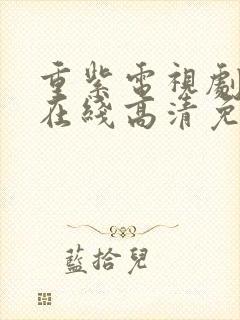 重紫電視劇
在綫高清免
藍拾兒